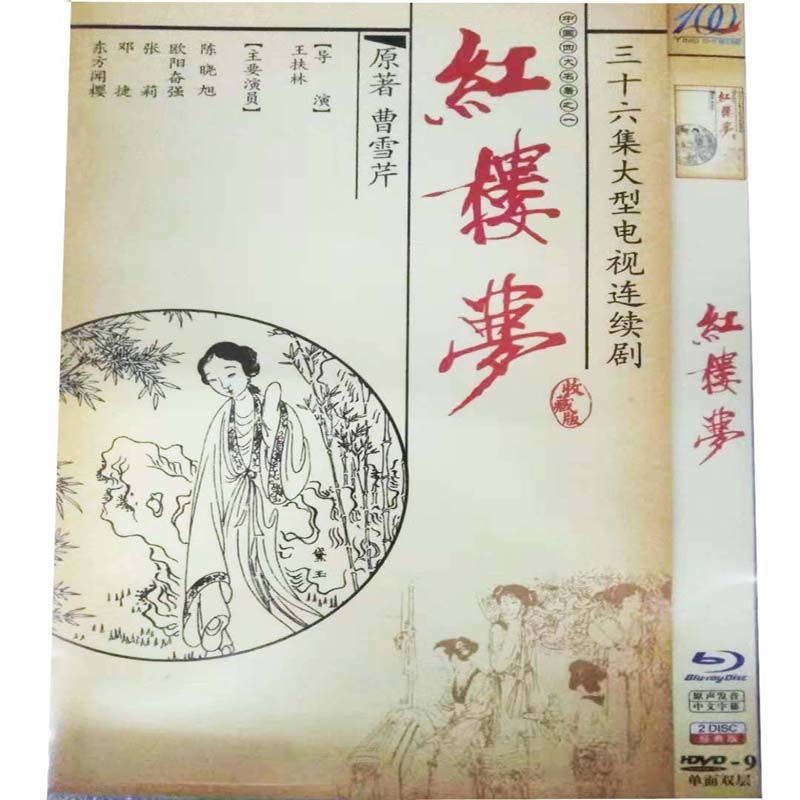 三十六集大型电视连续剧
中国四大名著之一
紅樓夢
收藏版
原著 曹雪芹
【导 演】
王扶林
【主要演员】
陈晓旭
欧阳奋强
张 莉
邓 捷
东方闻樱
黛玉
紅樓夢
紅樓夢
Blu-ray Disc
原声发音
中文字幕
2 DISC
经典版
HDVD-9
单面双层